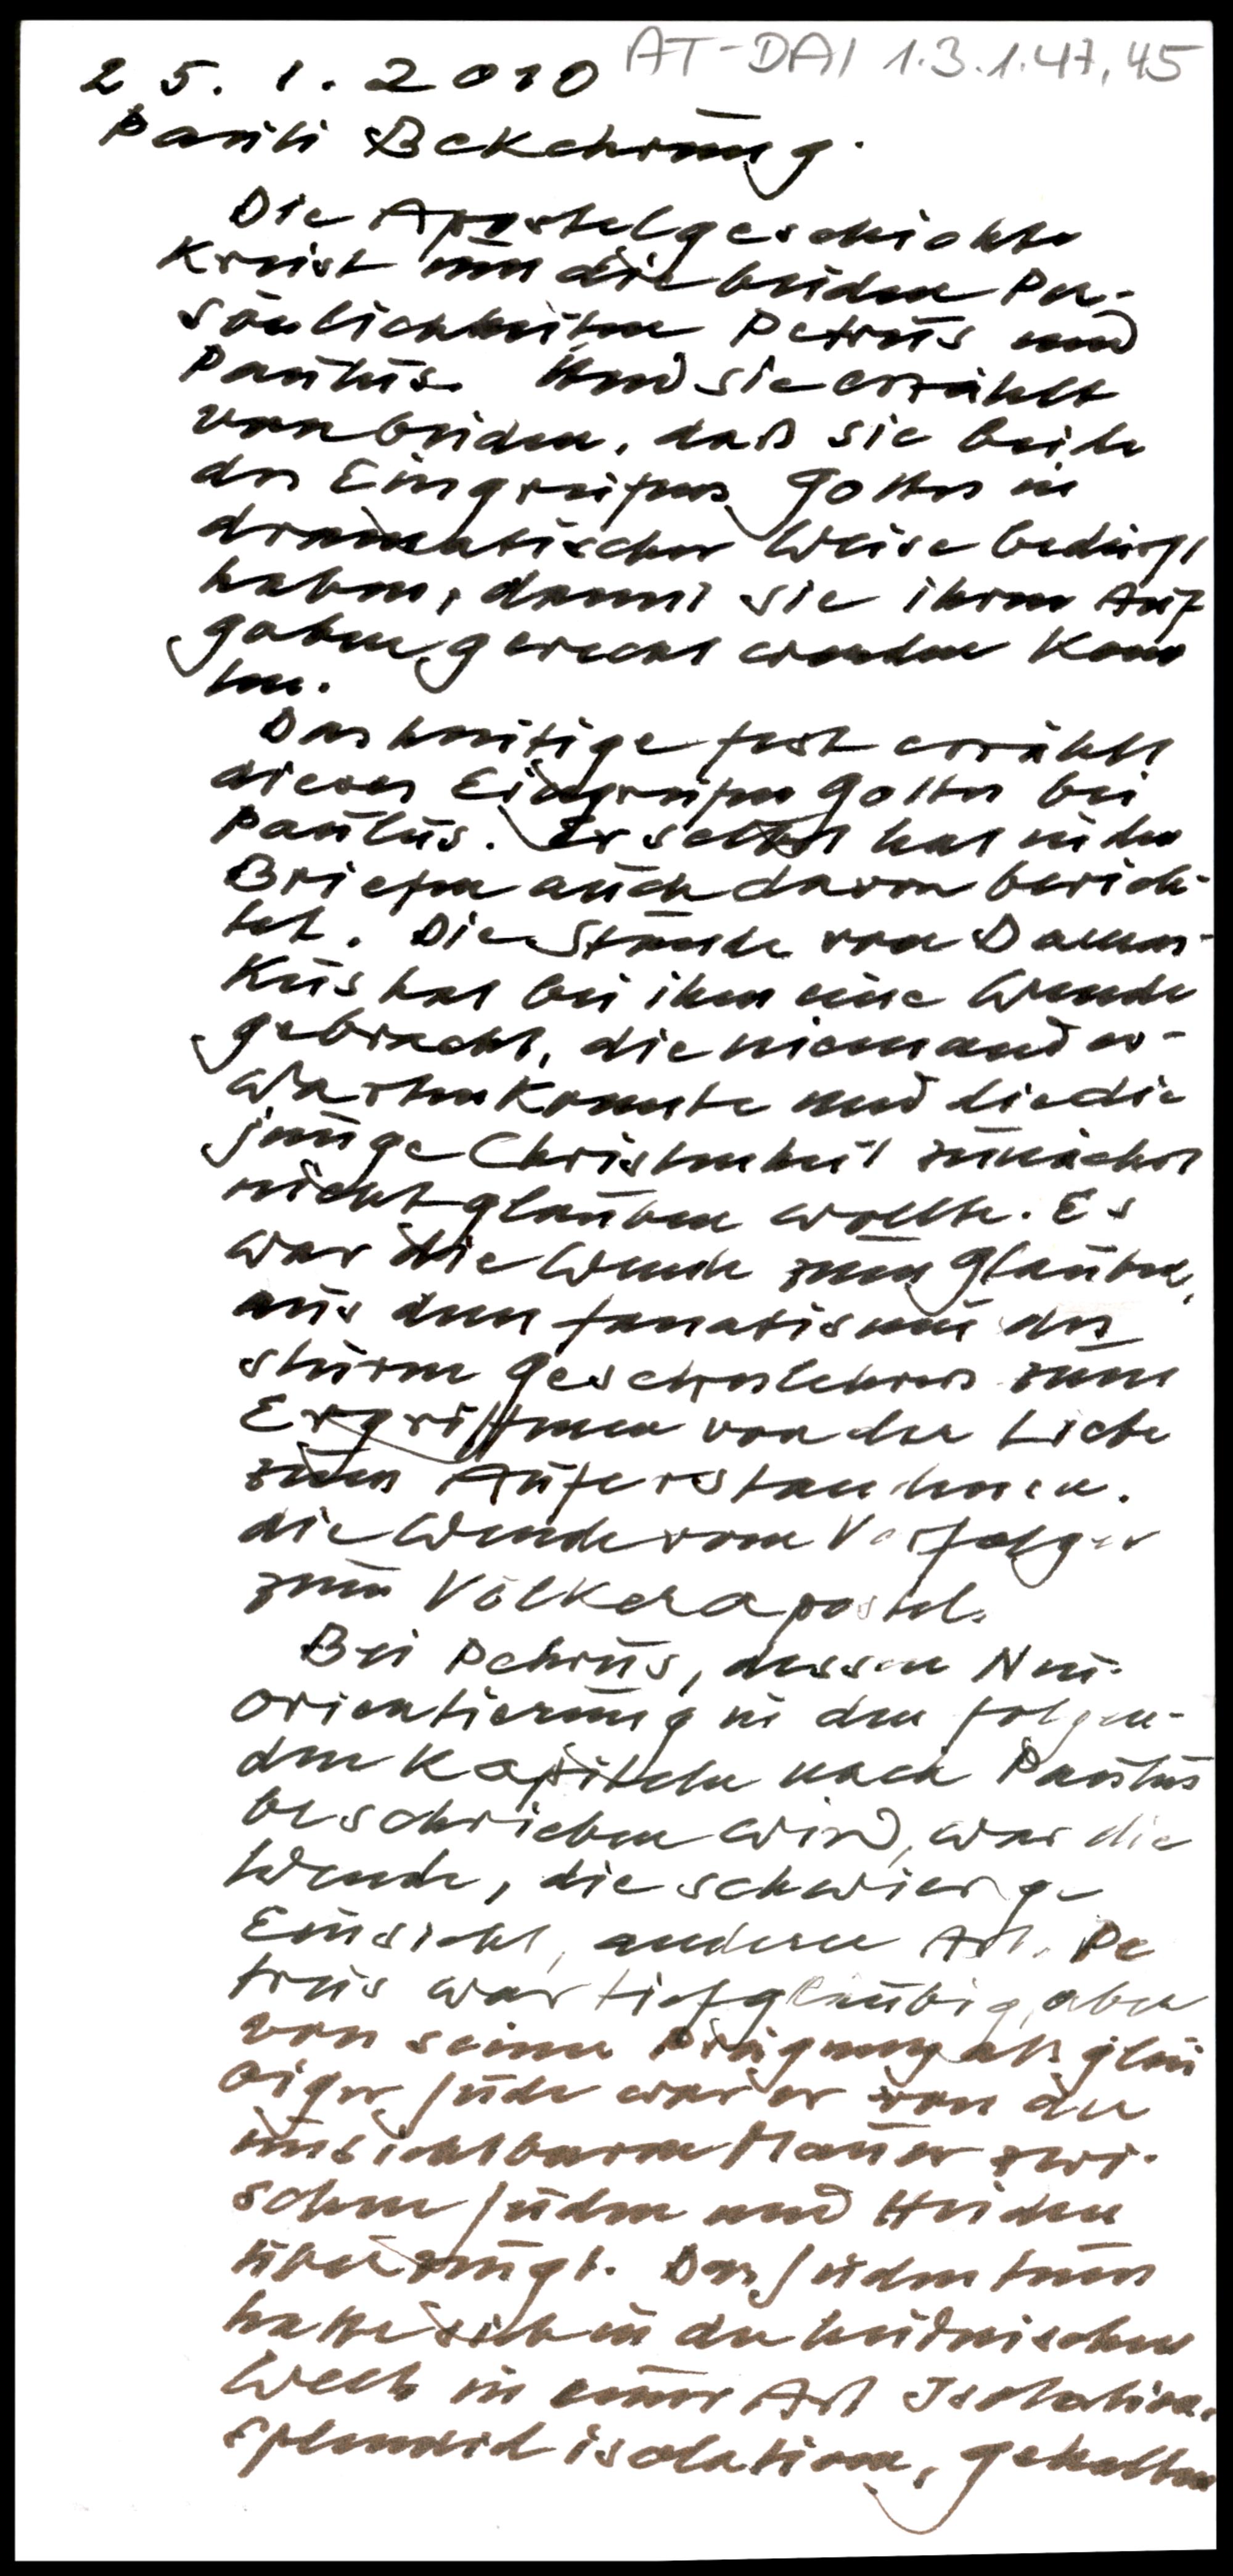 AT-DAI 1.3.1.47,45
25.1.2010
Pauli Bekehrung.
Die Apostelgeschichte
kreist um die beiden Per-
sönlichkeiten Petrus und
Paulus. Und sie erzählt
von beiden, daß sie beide
des Eingreifens Gottes in
dramatischer Weise bedurft
haben, damit sie ihren Auf
gaben gerecht werden konn
ten.
Das heutige Fest erzählt
dieses Eingreifen Gottes bei
Paulus. Er selbst hat in den
Briefen auch davon berich-
tet. Die Stunde von Damas-
kus hat bei ihm eine Wende
gebracht, die niemand er-
warten konnte und die die
junge Christenheit zunächst
nicht glauben wollte. Es
war die Wende zum Glauben,
aus dem Fanatismus des
sturen Gesetzeslehrers zum
Ergriffenen von der Liebe
zum Auferstandenen.
die Wende vom Verfolger
zum Völkerapostel.
Bei Petrus, dessen Neu-
orientierung in den folgen-
den Kapiteln nach Paulus
beschrieben wird, war die
Wende, die schwierige
Einsicht, anderer Art. Pe
trus war tiefgläubig, aber
von seiner Prägung als gläu
biger Jude war er von der
unsichtbaren Mauer zwi-
schen Juden und Heiden
überzeugt. Das Judentum
hatte sich in der heidnischen
Welt in einer Art Isolation,
splendid isolation, gehalten